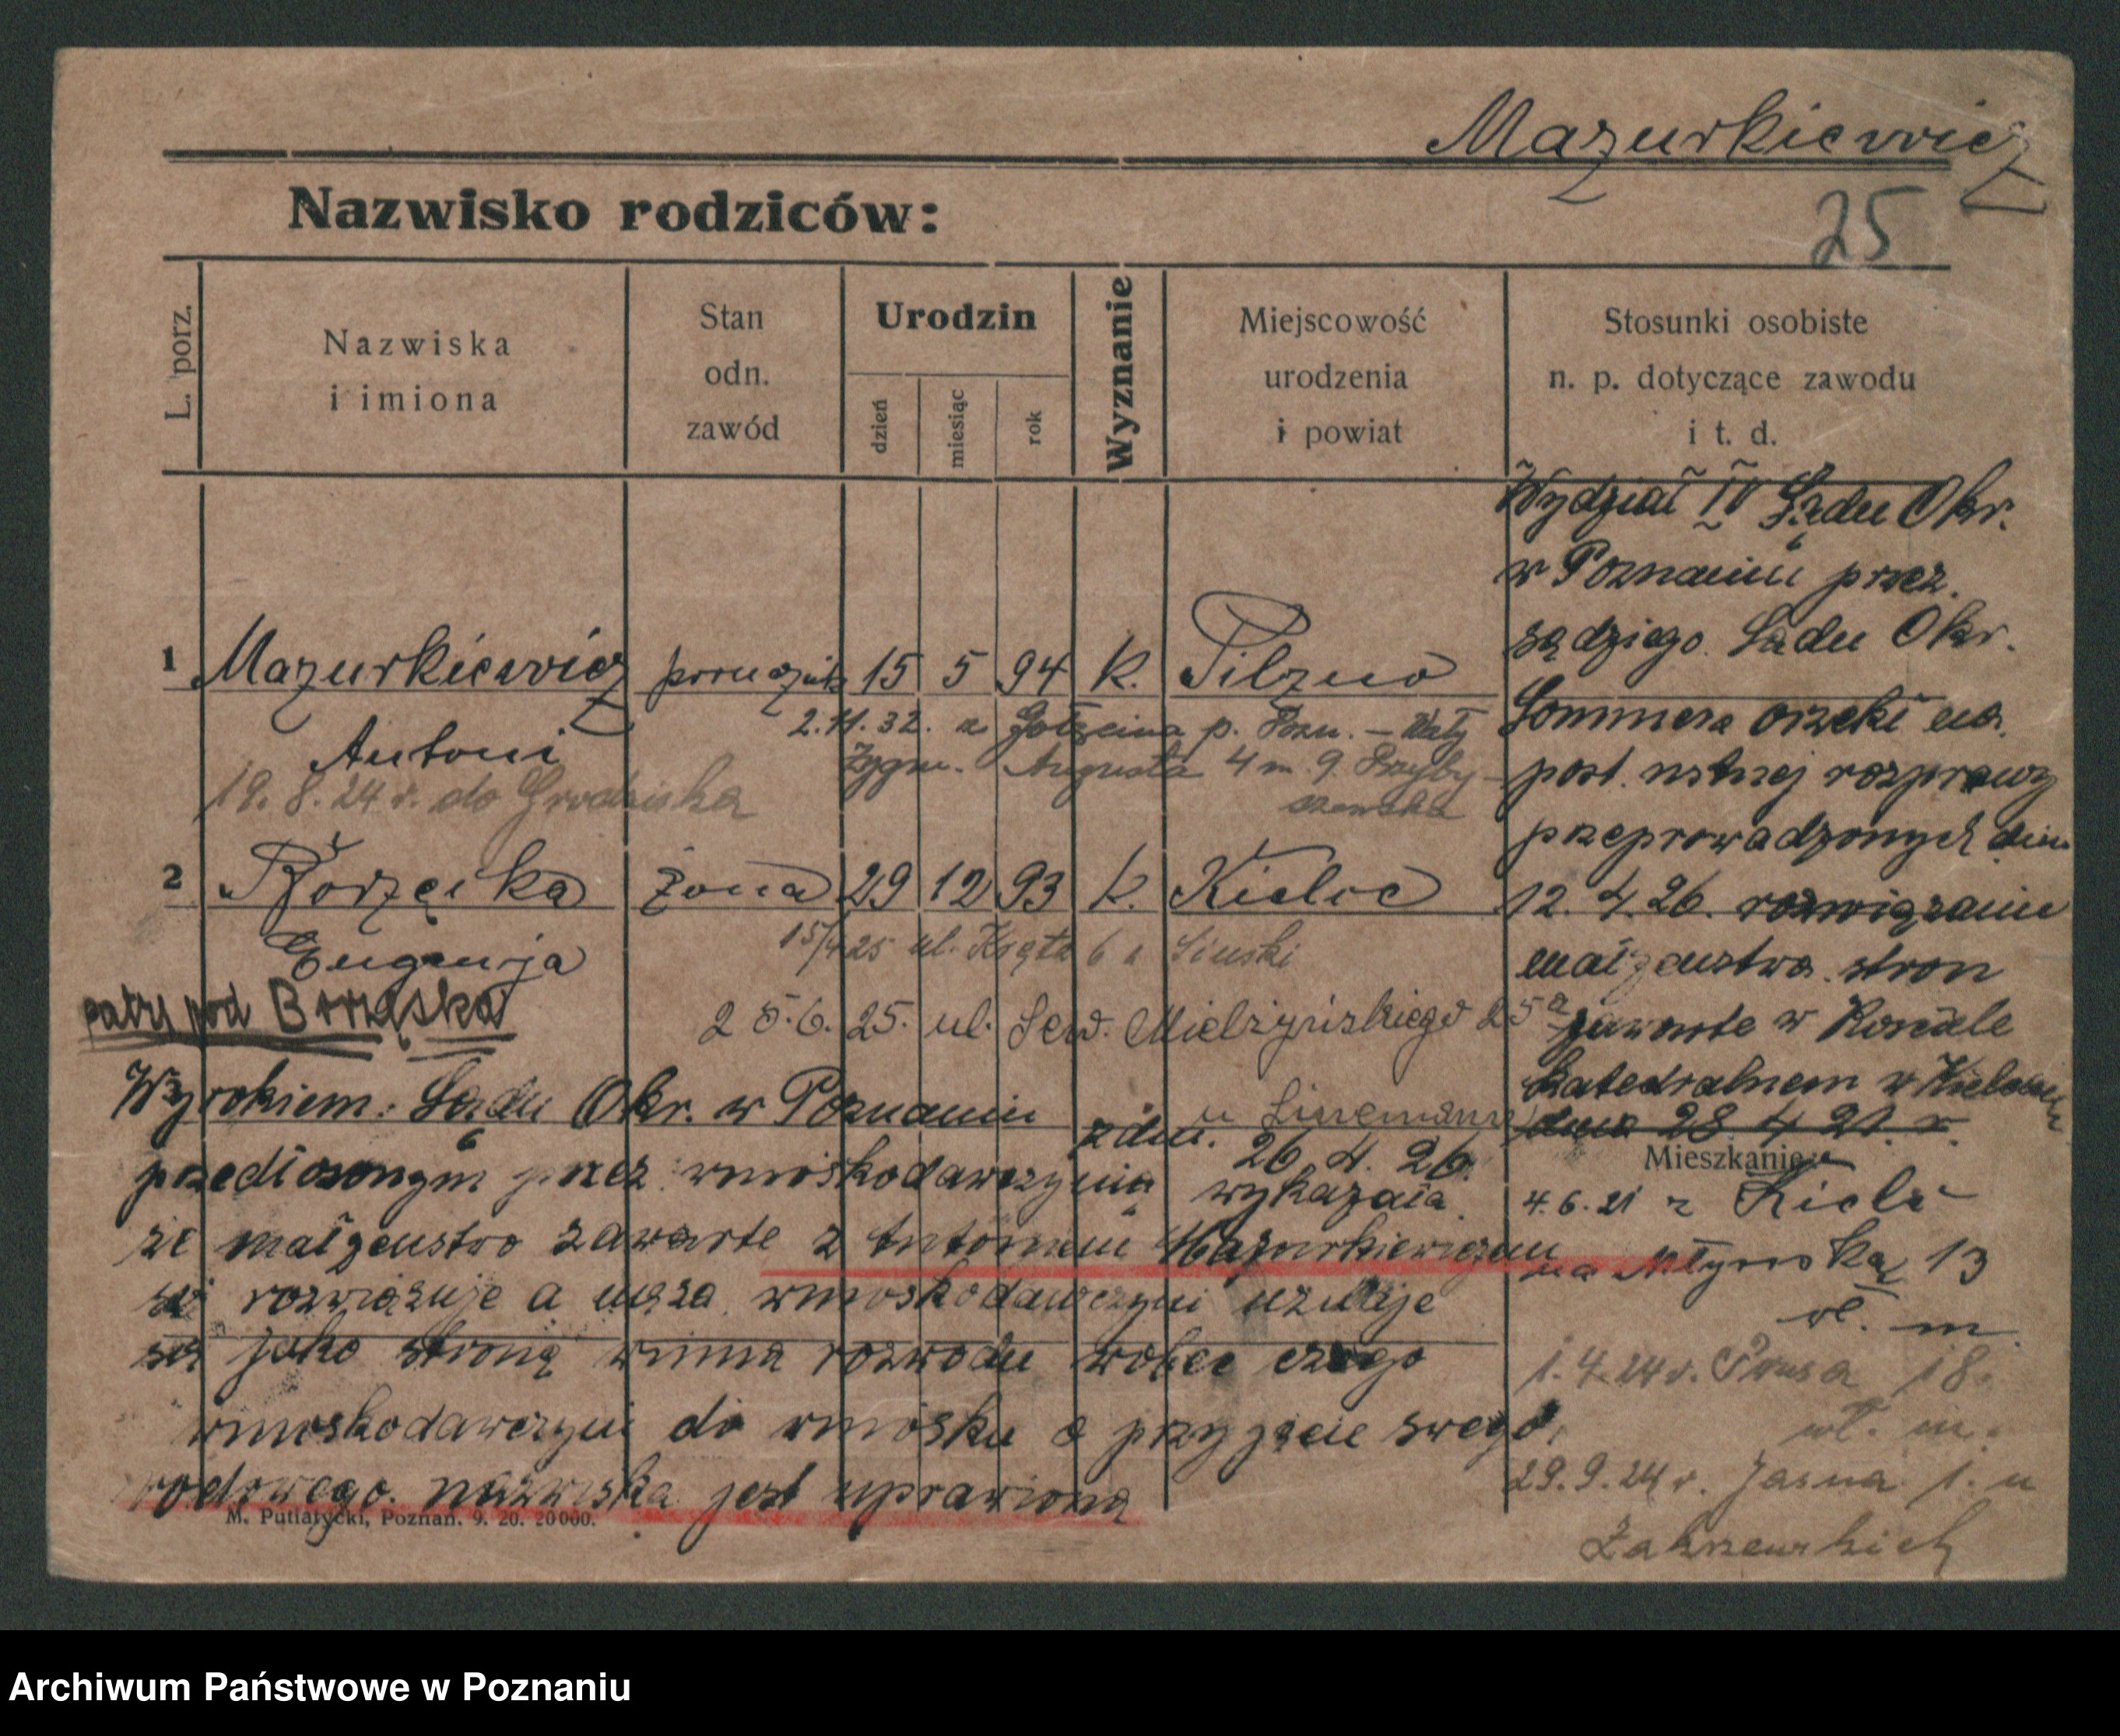 Mazurkiewicz
25
Nazwisko rodziców:
L. porz.
Nazwiska
i imiona
Stan
odn.
zawód
Urodzin
dzień
miesiąc
rok
Wyznanie
Miejscowość
urodzenia
i powiat
Stosunki osobiste
n. p. dotyczące zawodu
i t. d.
Wydział IV Sądu Okr.
w Poznaniu przez
sądziego Sądu Okr.
Sommera orzekł na
post. ustnej rozprawy
przeprowadzonych dnia
12. 4. 26. rozwiązanie
małżeństwa stron
zawarte w Kościele
katedralnem w Kielcach
dnia 28 4 21. r.
1 Mazurkiewicz porucznik 15 5 94 k. Pilzno
Antoni
2.11.32. z Golęcina p. Pozn. – Wały
Zygm. Augusta 4 m. 9. Przyby-
szewska
19. 8. 24 r. do Grodziska
2 Borzęcka żona 29 12 93 k. Kielce
Eugenja
15/4 25 ul. Kręta 6 u Sinski
patrz pod Borzęcka
25. 6. 25. ul. Sew. Mielżyńskiego 25a
u Linemann
Wyrokiem Sądu Okr. w Poznaniu z dn. 26. 4. 26.
przedłożonym przez wnioskodawczynię wykazała
że małżeństwo zawarte z Antonim Mazurkiewiczem
się rozwiązuje a męża wnioskodawczyni uznaje
się jako stroną winną rozwodu wobec czego
wnioskodawczyni do wniosku o przyjęcie swego
rodowego nazwiska jest uprawioną
Mieszkanie:
4. 6. 21 z Kielc
na Młyńską 13
wł. m.
1. 4. 24 r. Prusa 18.
wł. m.
29. 9. 24 r. Jasna 1. u
Zakrzewskich
M. Putiatycki, Poznań. 9. 20. 20000.
Archiwum Państwowe w Poznaniu